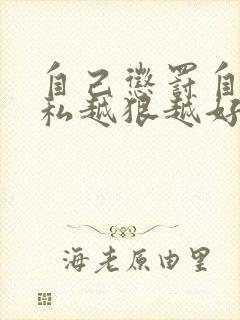 自己惩罚自
私越狠越好
海老原由里